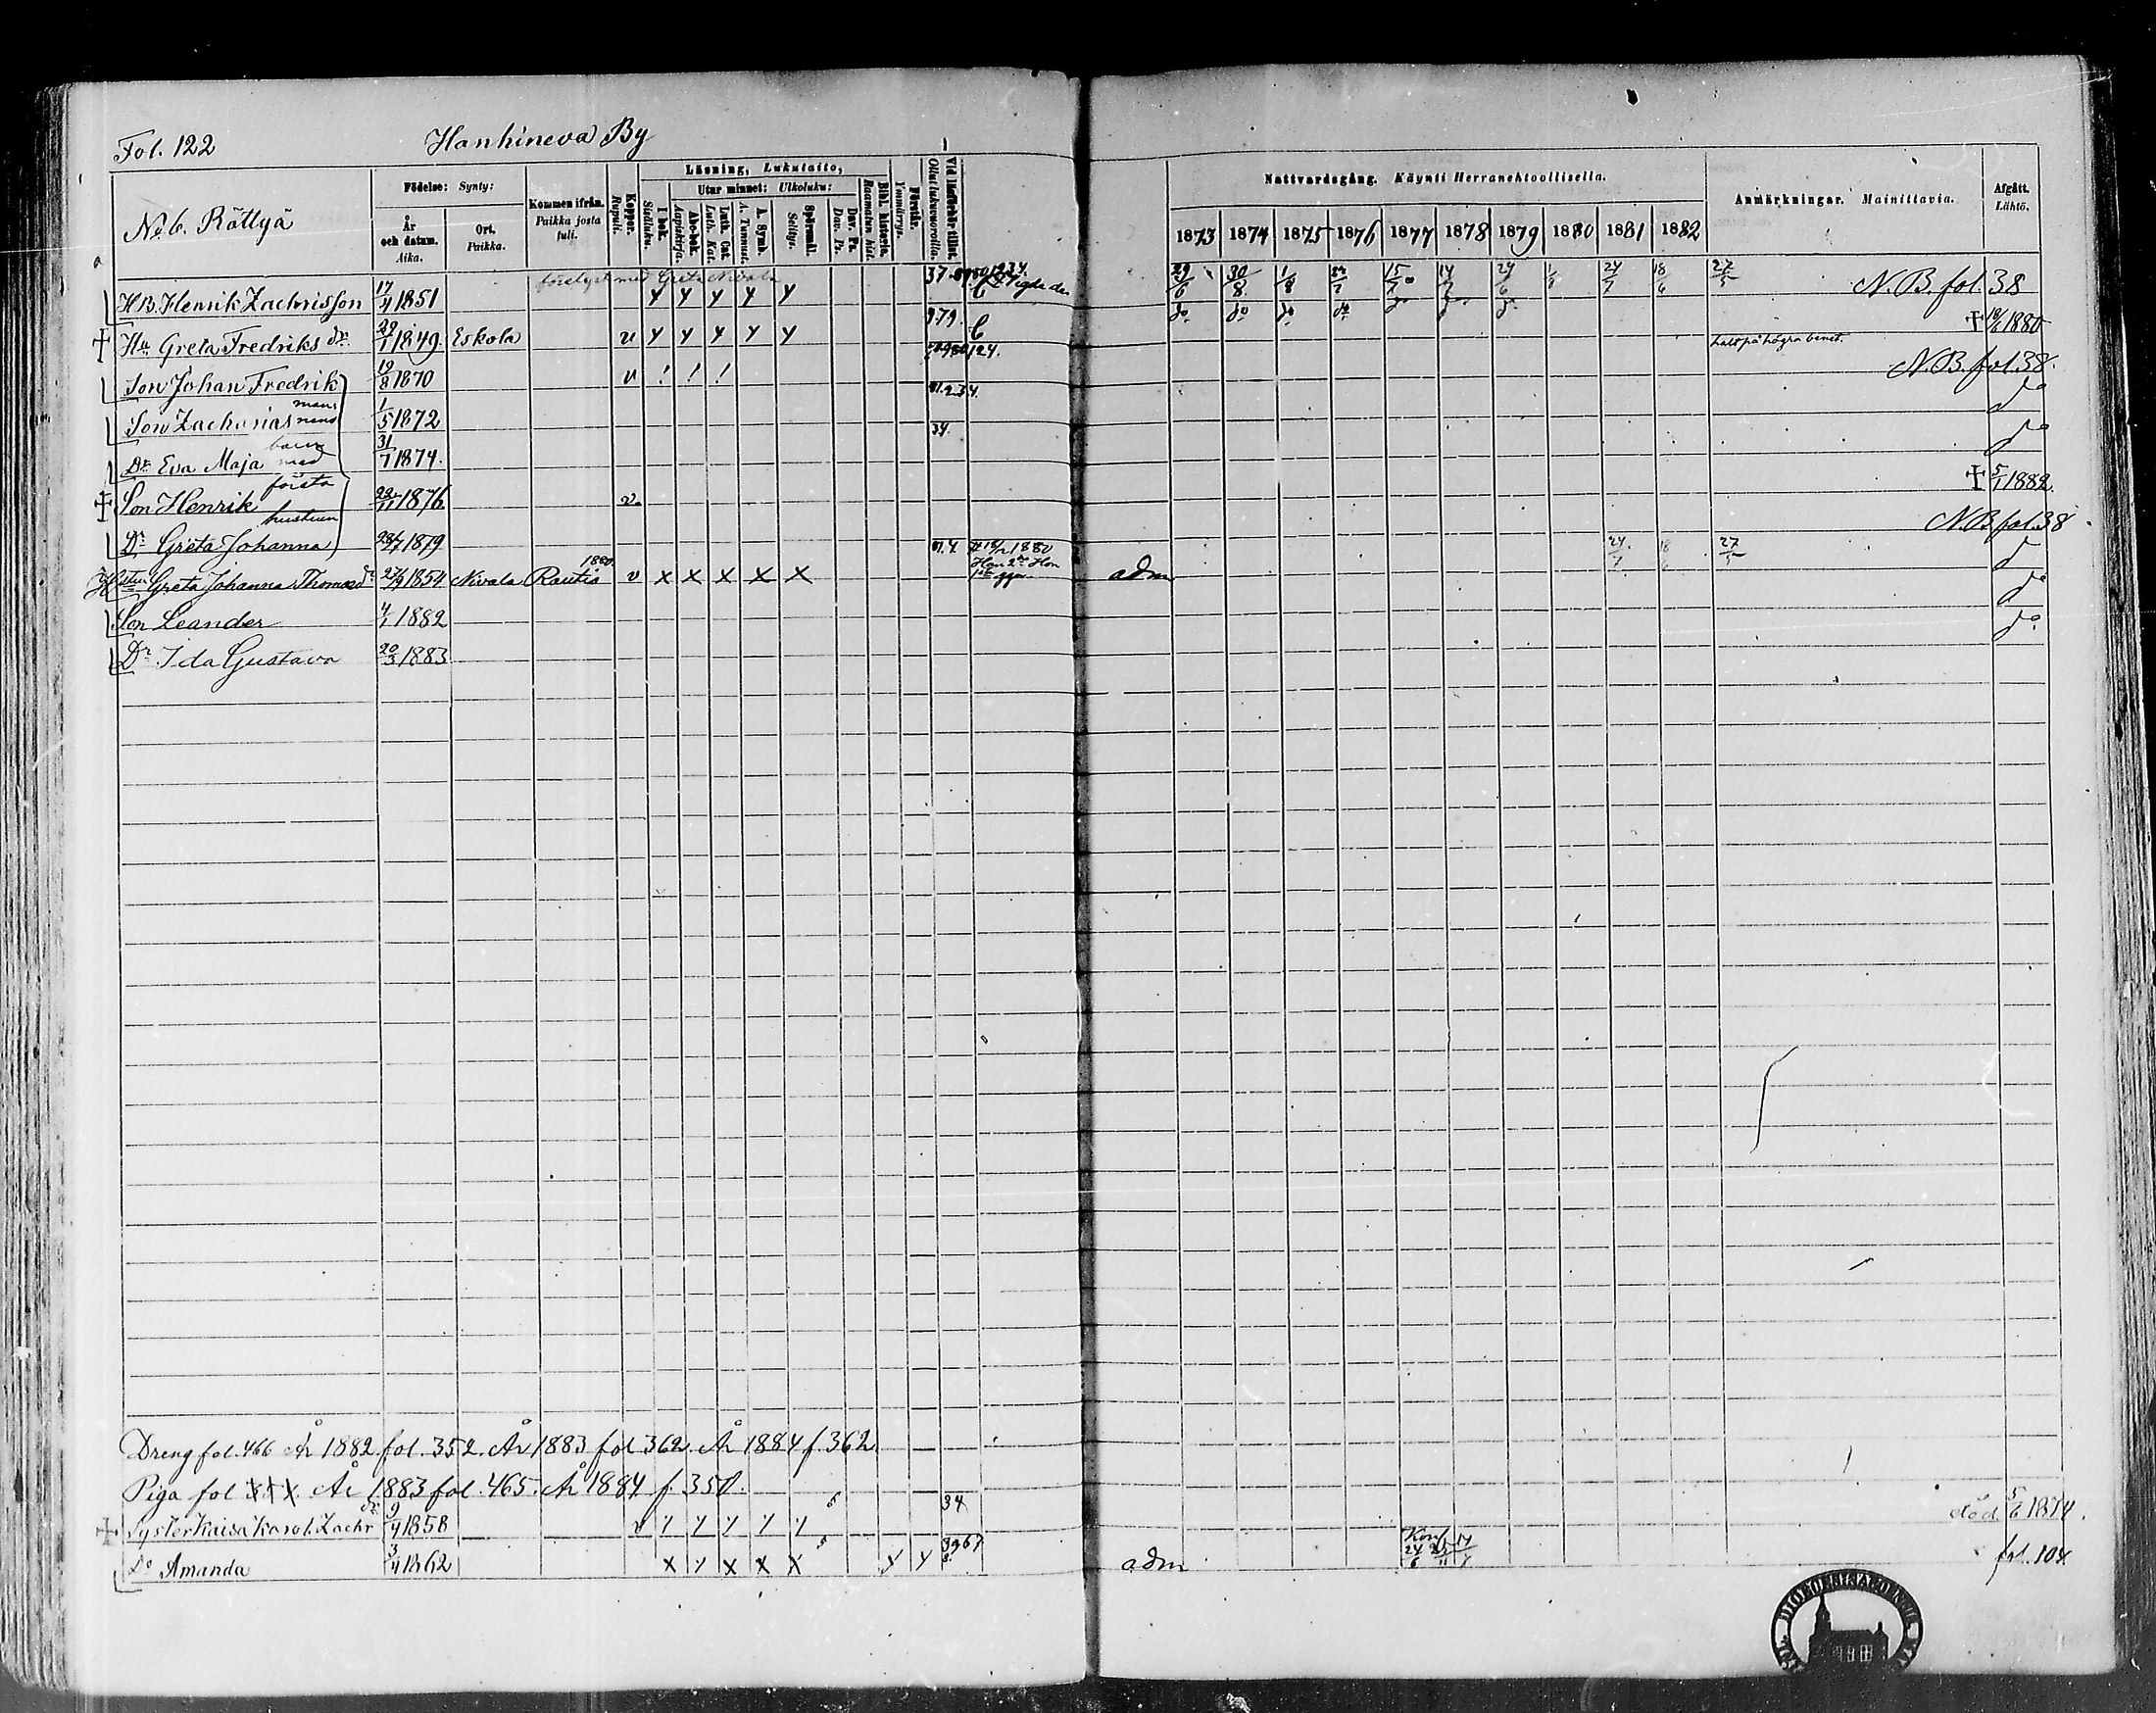 Fol. 122 Hanhineva By
No 6. Röttyä
Födelse: Synty:
År och datum. Aika.
Ort. Paikka.
Kommen ifrån. Paikka josta tuli.
Koppor. Rupuli.
Läsning, Lukutaito,
I bok. Sisäluku.
Utur minnet: Ulkoluku:
Abc-bok. Aapiskirja.
Luth. Cat Luth. Kat.
A. Symb. A. Tunnust.
Spörsmål. Selitys.
Dav. Ps. Dav. Ps.
Bibl. historie. Raamatun hist.
Förstår. Ymmärrys.
Vid läsförhör tillst. Ollut lukuvuoroilla.
Nattvardsgång. Käynti Herranehtoollisella.
1873 1874 1875 1876 1877 1878 1879 1880 1881 1882
Anmärkningar. Mainittavia.
Afgått. Lähtö.
förelyst med Greta Nivala
HB. Henrik Zachrisson 17/4 1851 y y y y y 29/6 30/8 1/8 24/7 18/6 27/5 N.B. fol. 38
Hu Greta Fredriks dr 29/1 1849 Eskola v y y y y y 379. do do do do † 18/6 1880
Son Johan Fredrik 19/8 1870 v ! ! ! halt på högra benet. N.B. fol 38.
Son Zacharias 1/5 1872 do
Dr Eva Maja 31/7 1874. 34. do
mans barn med första hustrun
Son Henrik 1876 v. † 5/1 1882.
Dr Greta Johanna 1879 N.B. fol 38
Hustru Greta Johanna Thomasdr 1854 Nivala Rautio 1880. v x x x x x 1880 adm 24/7 18/6 27/5 d
Son Leander 4/1 1882 do
Dr Ida Gustava 20/3 1883 do
Dreng fol. 466 År 1882 fol. 352. År 1883 fol 362. År 1884 f 362
Piga fol År 1883 fol. 465. År 1884 f. 350.
Syster Kaisa Karol. Zachr dr 9/4 1858 v 34 död 5/6 1874.
Do Amanda 3/4 1862 x y x x x y y 3967 adm Konf 24/6 fol. 104